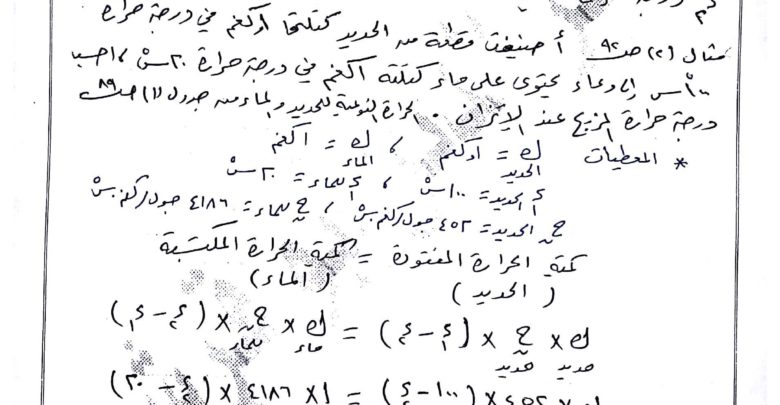 مثال (٢) ص٩٢ أضيفت قطعة من الحديد كتلتها ا٫كغم في درجة حرارة
١٠٠ْس إلى وعاء يحتوي على ماء كتلته ١كغم في درجة حرارة ٢٠ْس ، احسب
درجة حرارة المزيج عند الإتزان . الحرارة النوعية للحديد والماء من جدول (١) ص٨٩
* المعطيات ك الحديد = ا٫كغم ، ك الماء = ١كغم
الحديد = ١٠٠ْس ، الماء = ٢٠ْس
ح الحديد = ٤٥٢ جول/كغم.ْس ، ح الماء = ٤١٨٦ جول/كغم.ْس
كمية الحرارة المفقودة = كمية الحرارة المكتسبة
( الحديد ) ( الماء )
ك حديد × ح حديد × (د١ - د٢) = ك ماء × ح ماء × (د٢ - د١)
× ٤٥٢ × (١٠٠ - د٢) = ١ × ٤١٨٦ × (د٢ - ٢٠)